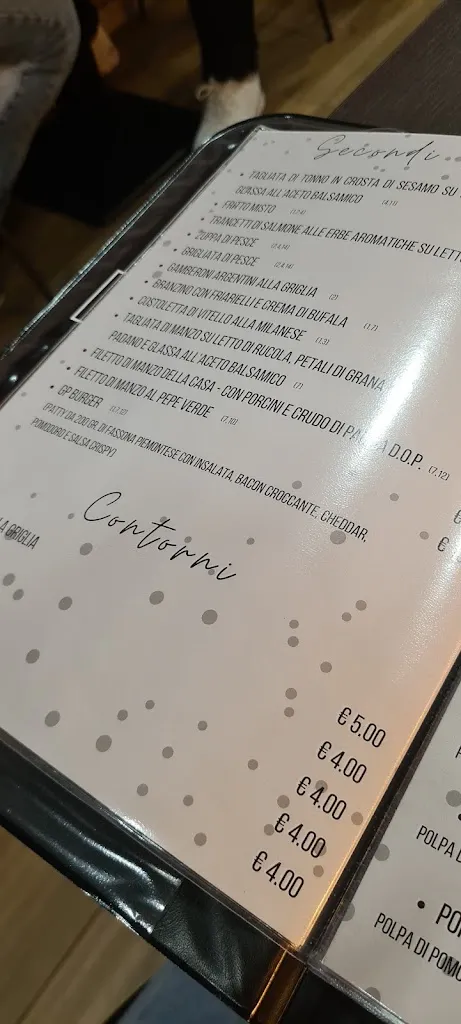 Secondi
• TAGLIATA DI TONNO IN CROSTA DI SESAMO SU
GLASSA ALL'ACETO BALSAMICO (4,11)
• FRITTO MISTO
• TRANCETTI DI SALMONE ALLE ERBE AROMATICHE SU LETT
• ZUPPA DI PESCE (2,4,14)
• GRIGLIATA DI PESCE (2,4,14)
• GAMBERONI ARGENTINI ALLA GRIGLIA (2)
• BRANZINO CON FRIARIELLI E CREMA DI BUFALA (1,7)
• COSTOLETTA DI VITELLO ALLA MILANESE (1,3)
• TAGLIATA DI MANZO SU LETTO DI RUCOLA, PETALI DI GRANA
PADANO E GLASSA ALL'ACETO BALSAMICO (7)
• FILETTO DI MANZO DELLA CASA - CON PORCINI E CRUDO DI PARMA D.O.P. (7,12)
• FILETTO DI MANZO AL PEPE VERDE (7,10)
• GP BURGER (1,7,12)
(PATTY DA 200 GR. DI FASSONA PIEMONTESE CON INSALATA, BACON CROCCANTE, CHEDDAR,
POMODORO E SALSA CRISPY)
€
€
Contorni
LA GRIGLIA
€ 5.00
€ 4.00
€ 4.00
€ 4.00
€ 4.00
POLPA D
• PO
POLPA DI POMO